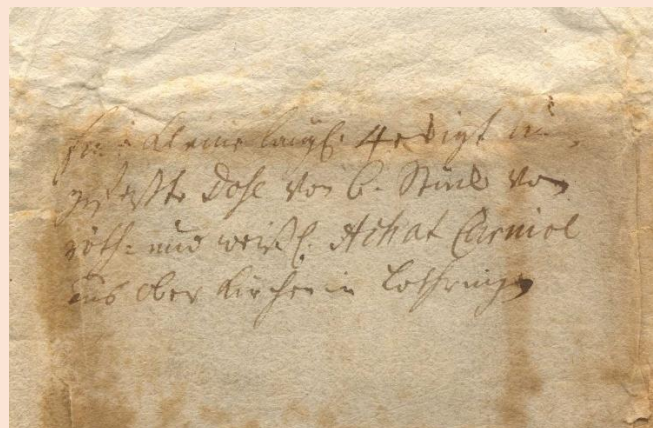 Eine kleine längl. 4eckigt in
gefaßte Dose von 6. Stück von
röth- und weißl. Achat Carniol
aus Oberkirchen in Lothringen